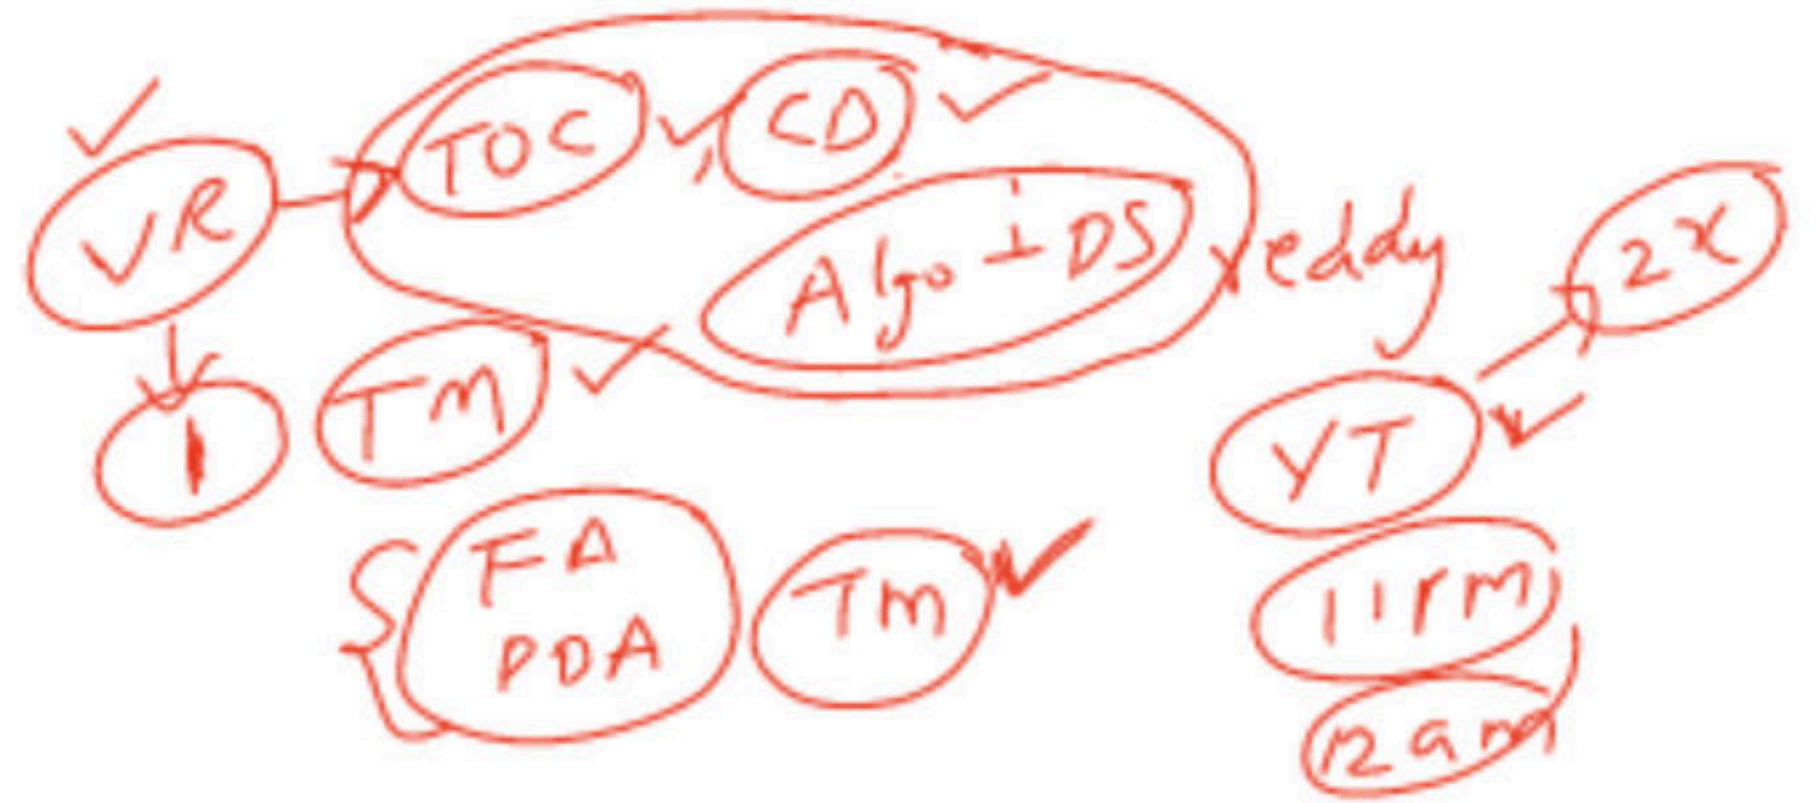 TOC, CD
VR
Algo + DS
reddy
2x
TM
1
YT
FA
PDA
TM
11pm
12am